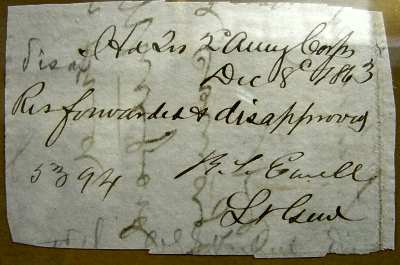 Hd Qrs 2d Army Corps
Dec 8th 1863
Res forwarded & disapproved
R. S. Ewell
Lt Genl